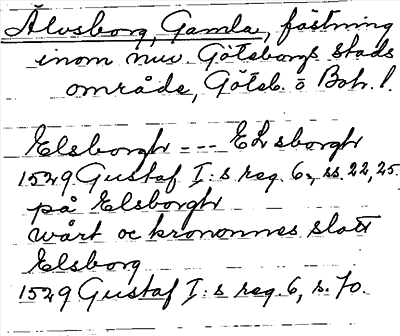 Älvsborg, Gamla, fästning
inom nuv. Göteborgs stads
område, Göteb. o Boh. l.
Elsborgh --- Elsborgh
1529 Gustaf I:s reg. 6, ss. 22, 25.
på Elsborgh
wårt oc kronones slott
Elsborg
1529 Gustaf I:s reg. 6, s. 70.